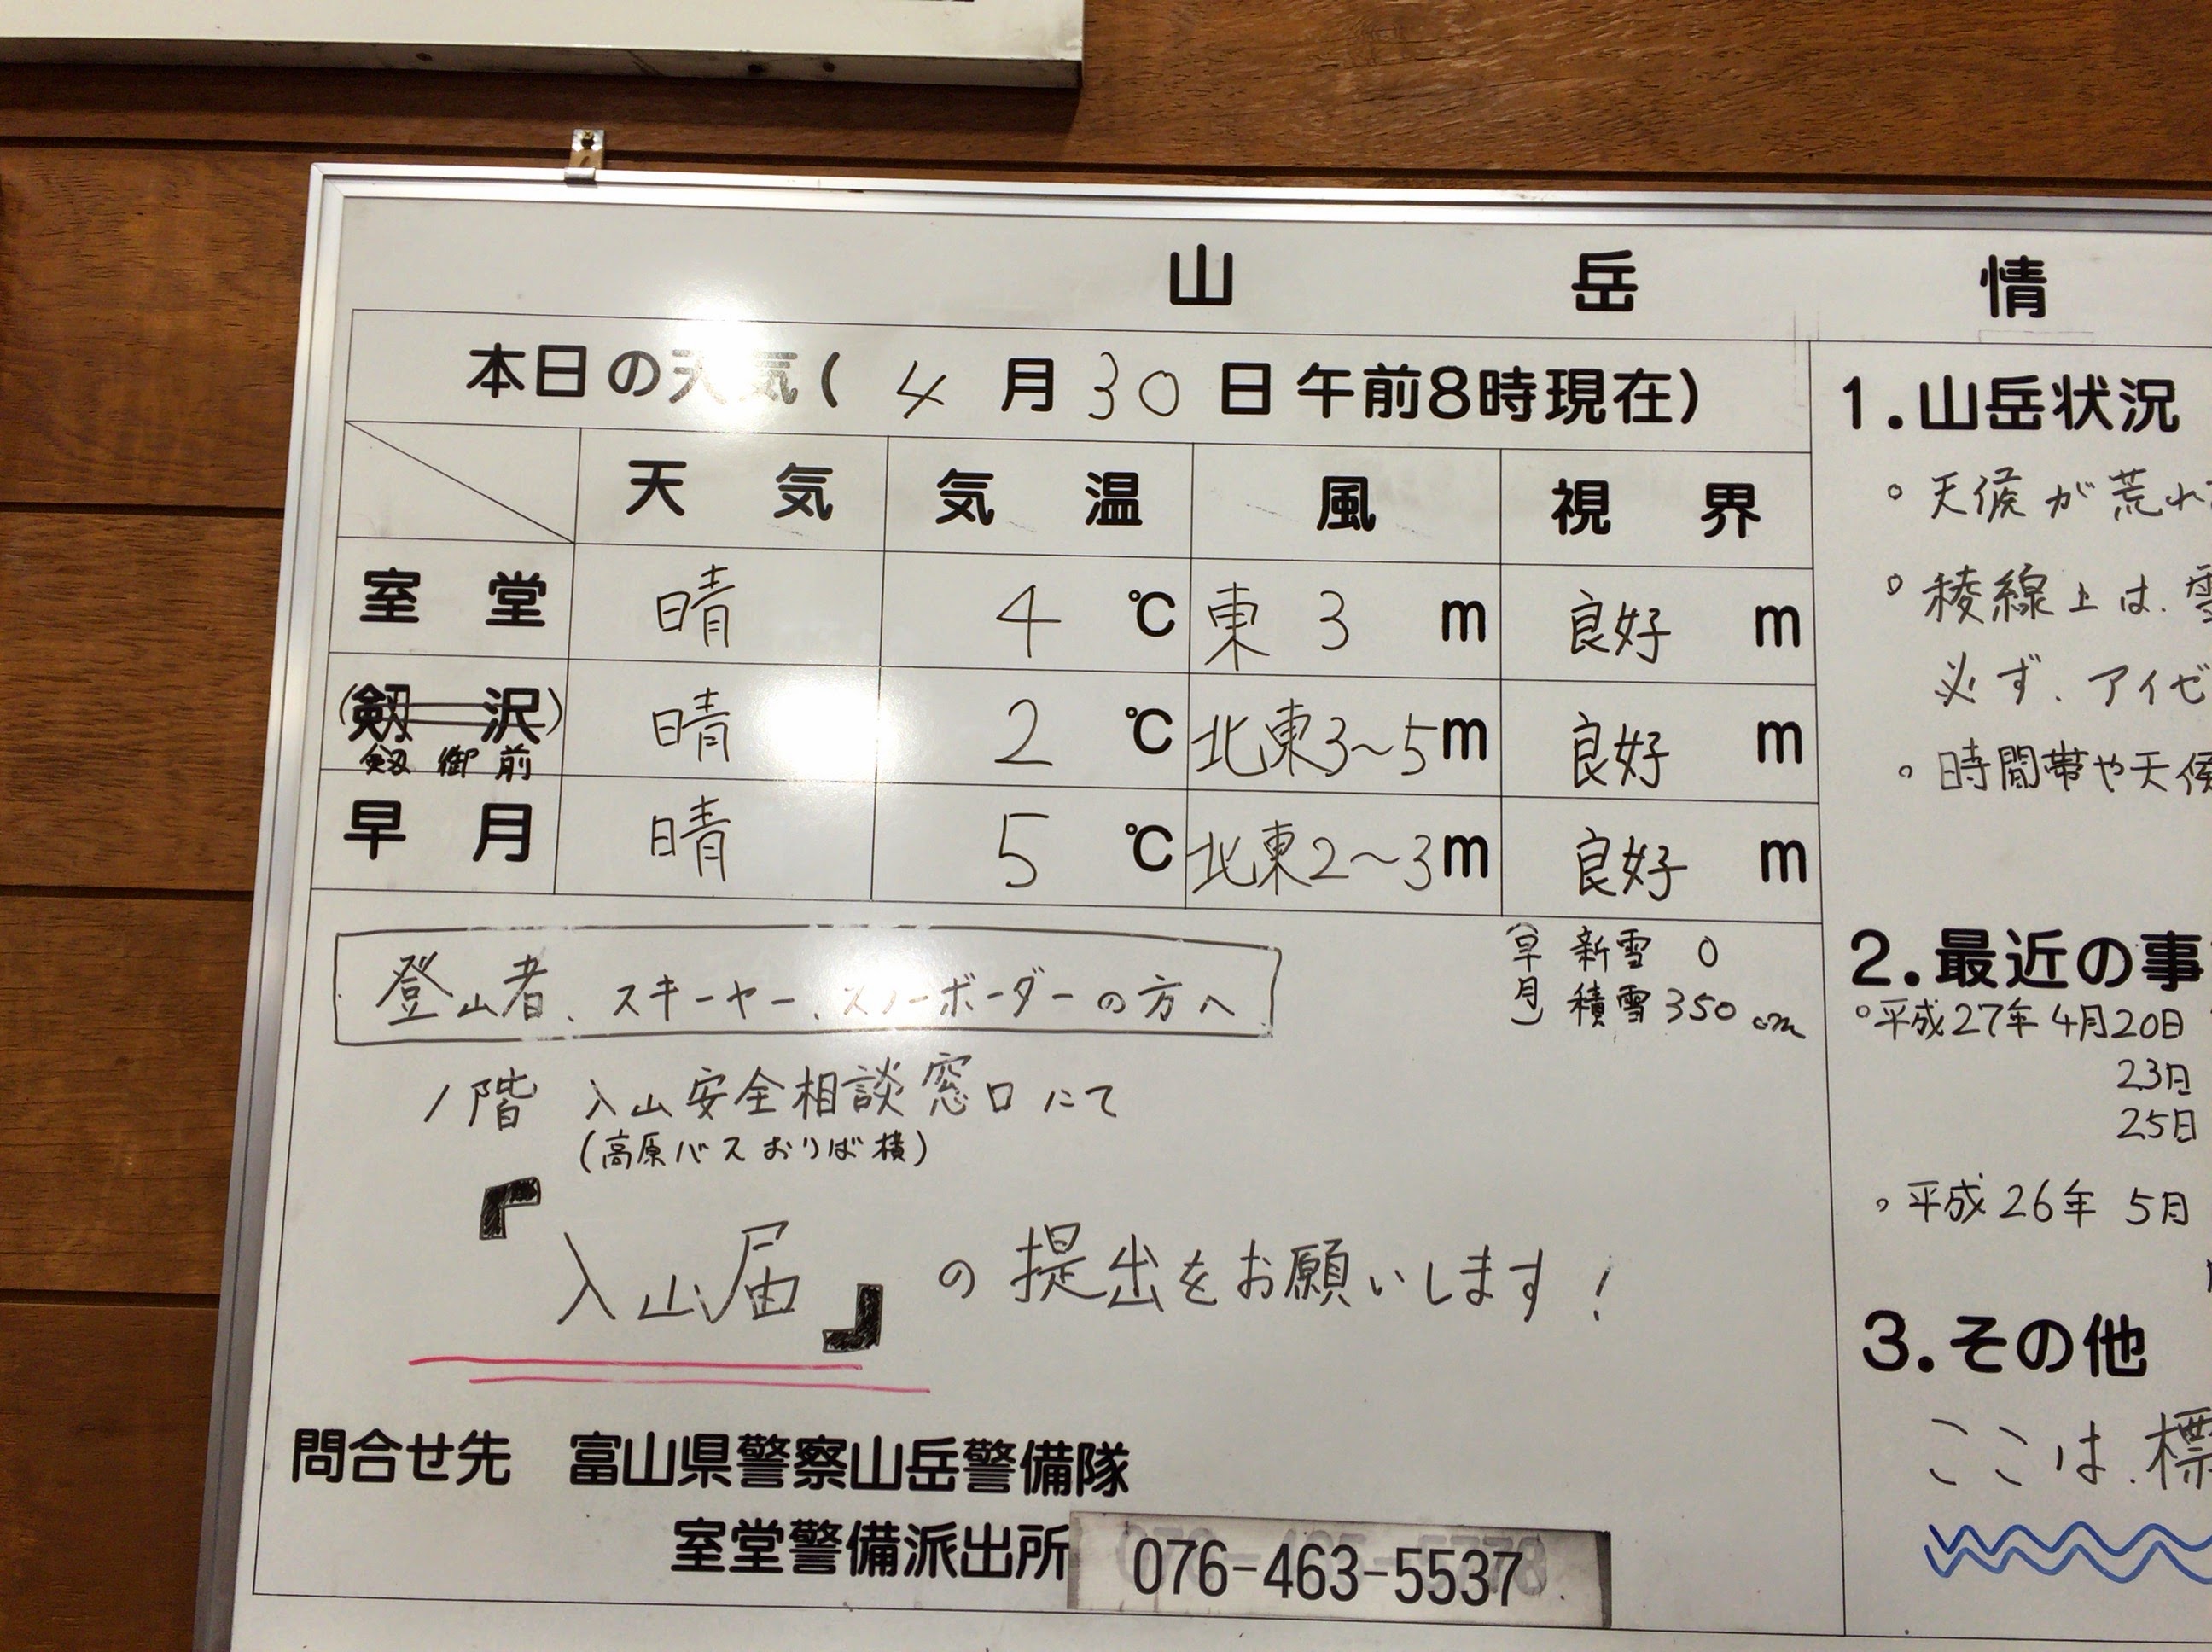 山岳情
本日の天気( 4月30日午前8時現在)
天気 気温 風 視界
室堂 晴 4℃ 東 3 m 良好 m
(剱沢) 晴 2℃ 北東3~5m 良好 m
剱御前
早月 晴 5℃ 北東2~3m 良好 m
登山者、スキーヤー、スノーボーダーの方へ
(早月) 新雪 0
積雪 350cm
1階 入山安全相談窓口にて
(高原バスおりば横)
『入山届』の提出をお願いします!
問合せ先 富山県警察山岳警備隊
室堂警備派出所 076-463-5537
1.山岳状況
。天候が荒れ
。稜線上は、雪
必ず、アイゼ
。時間帯や天候
2.最近の事
。平成27年4月20日
23日
25日
。平成26年 5月
3.その他
ここは、標